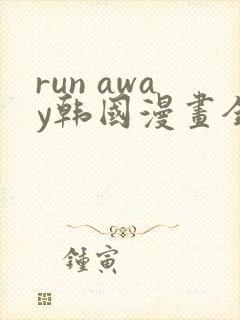 run awa
y韩國漫畫全
鍾寅